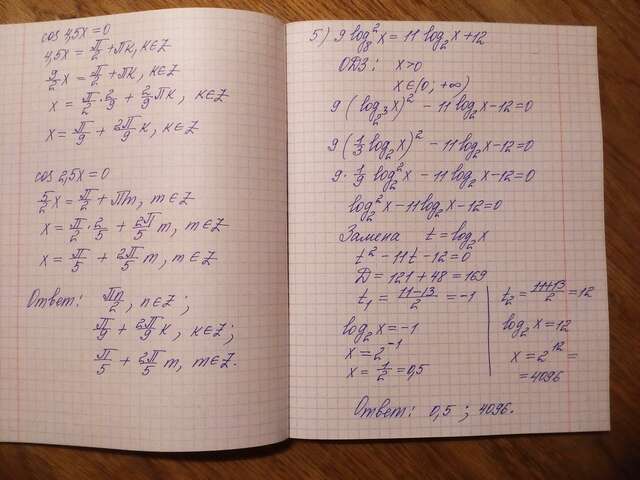 cos 4,5x=0
4,5x = π/2 + πk, k∈Z
9/2 x = π/2 + πk, k∈Z
x = π/2 · 2/9 + 2/9 πk, k∈Z
x = π/9 + 2π/9 k, k∈Z
cos 2,5x=0
5/2 x = π/2 + πm, m∈Z
x = π/2 · 2/5 + 2π/5 m, m∈Z
x = π/5 + 2π/5 m, m∈Z
Ответ: πn/2, n∈Z;
π/9 + 2π/9 k, k∈Z;
π/5 + 2π/5 m, m∈Z.
5) 9 log₈² x = 11 log₂ x + 12
ОДЗ: x>0
x∈(0; +∞)
9 (log_{2³} x)² - 11 log₂ x - 12 = 0
9 (1/3 log₂ x)² - 11 log₂ x - 12 = 0
9 · 1/9 log₂² x - 11 log₂ x - 12 = 0
log₂² x - 11 log₂ x - 12 = 0
Замена t = log₂ x
t² - 11t - 12 = 0
D = 121 + 48 = 169
t₁ = (11-13)/2 = -1
log₂ x = -1
x = 2⁻¹
x = 1/2 = 0,5
t₂ = (11+13)/2 = 12
log₂ x = 12
x = 2¹² =
= 4096
Ответ: 0,5 ; 4096.